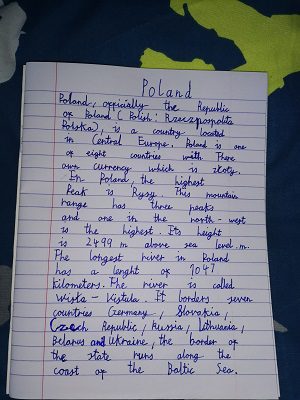 Poland
Poland, officially the Republic
of Poland (Polish: Rzeczpospolita
Polska), is a country located
in Central Europe. Poland is one
of eight countries with There
own currency which is złoty.
In Poland the highest
Peak is Rysy. This mountain
range has three peaks
and one in the north-west
is the highest. Its height
is 2499 m above sea level.m.
The longest river in Poland
has a lenght of 1047
kilometers. The river is called
Wisła - Vistula. It borders seven
countries Germany, Slovakia,
Czech Republic, Russia, Lithuania,
Belarus and Ukraine, the border of
the state runs along the
coast of the Baltic Sea.